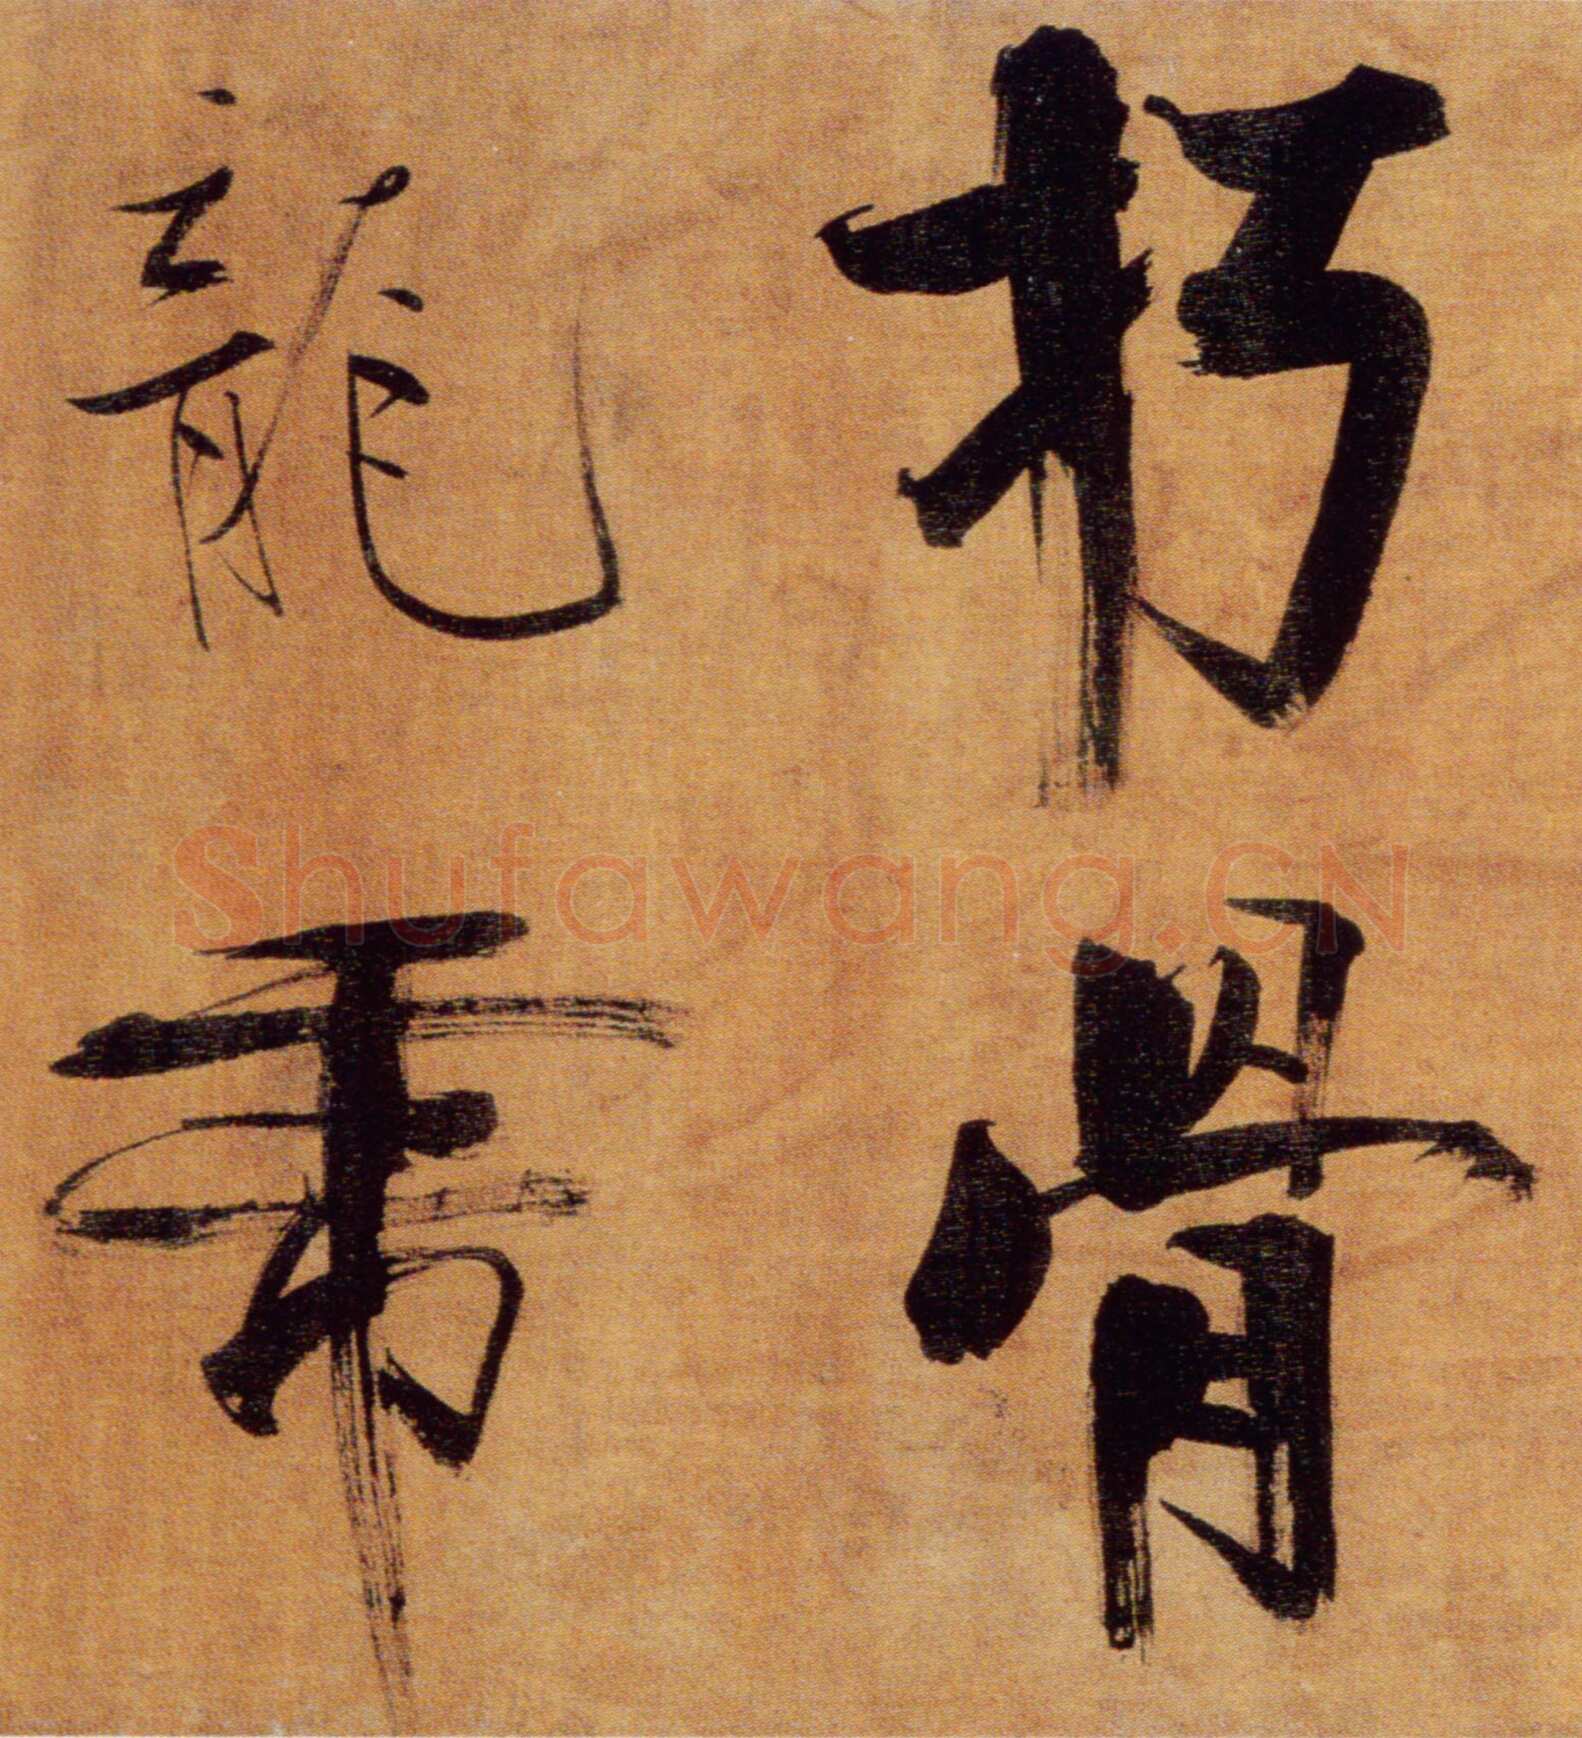 朽骨
龍虎
Shufawang.CN